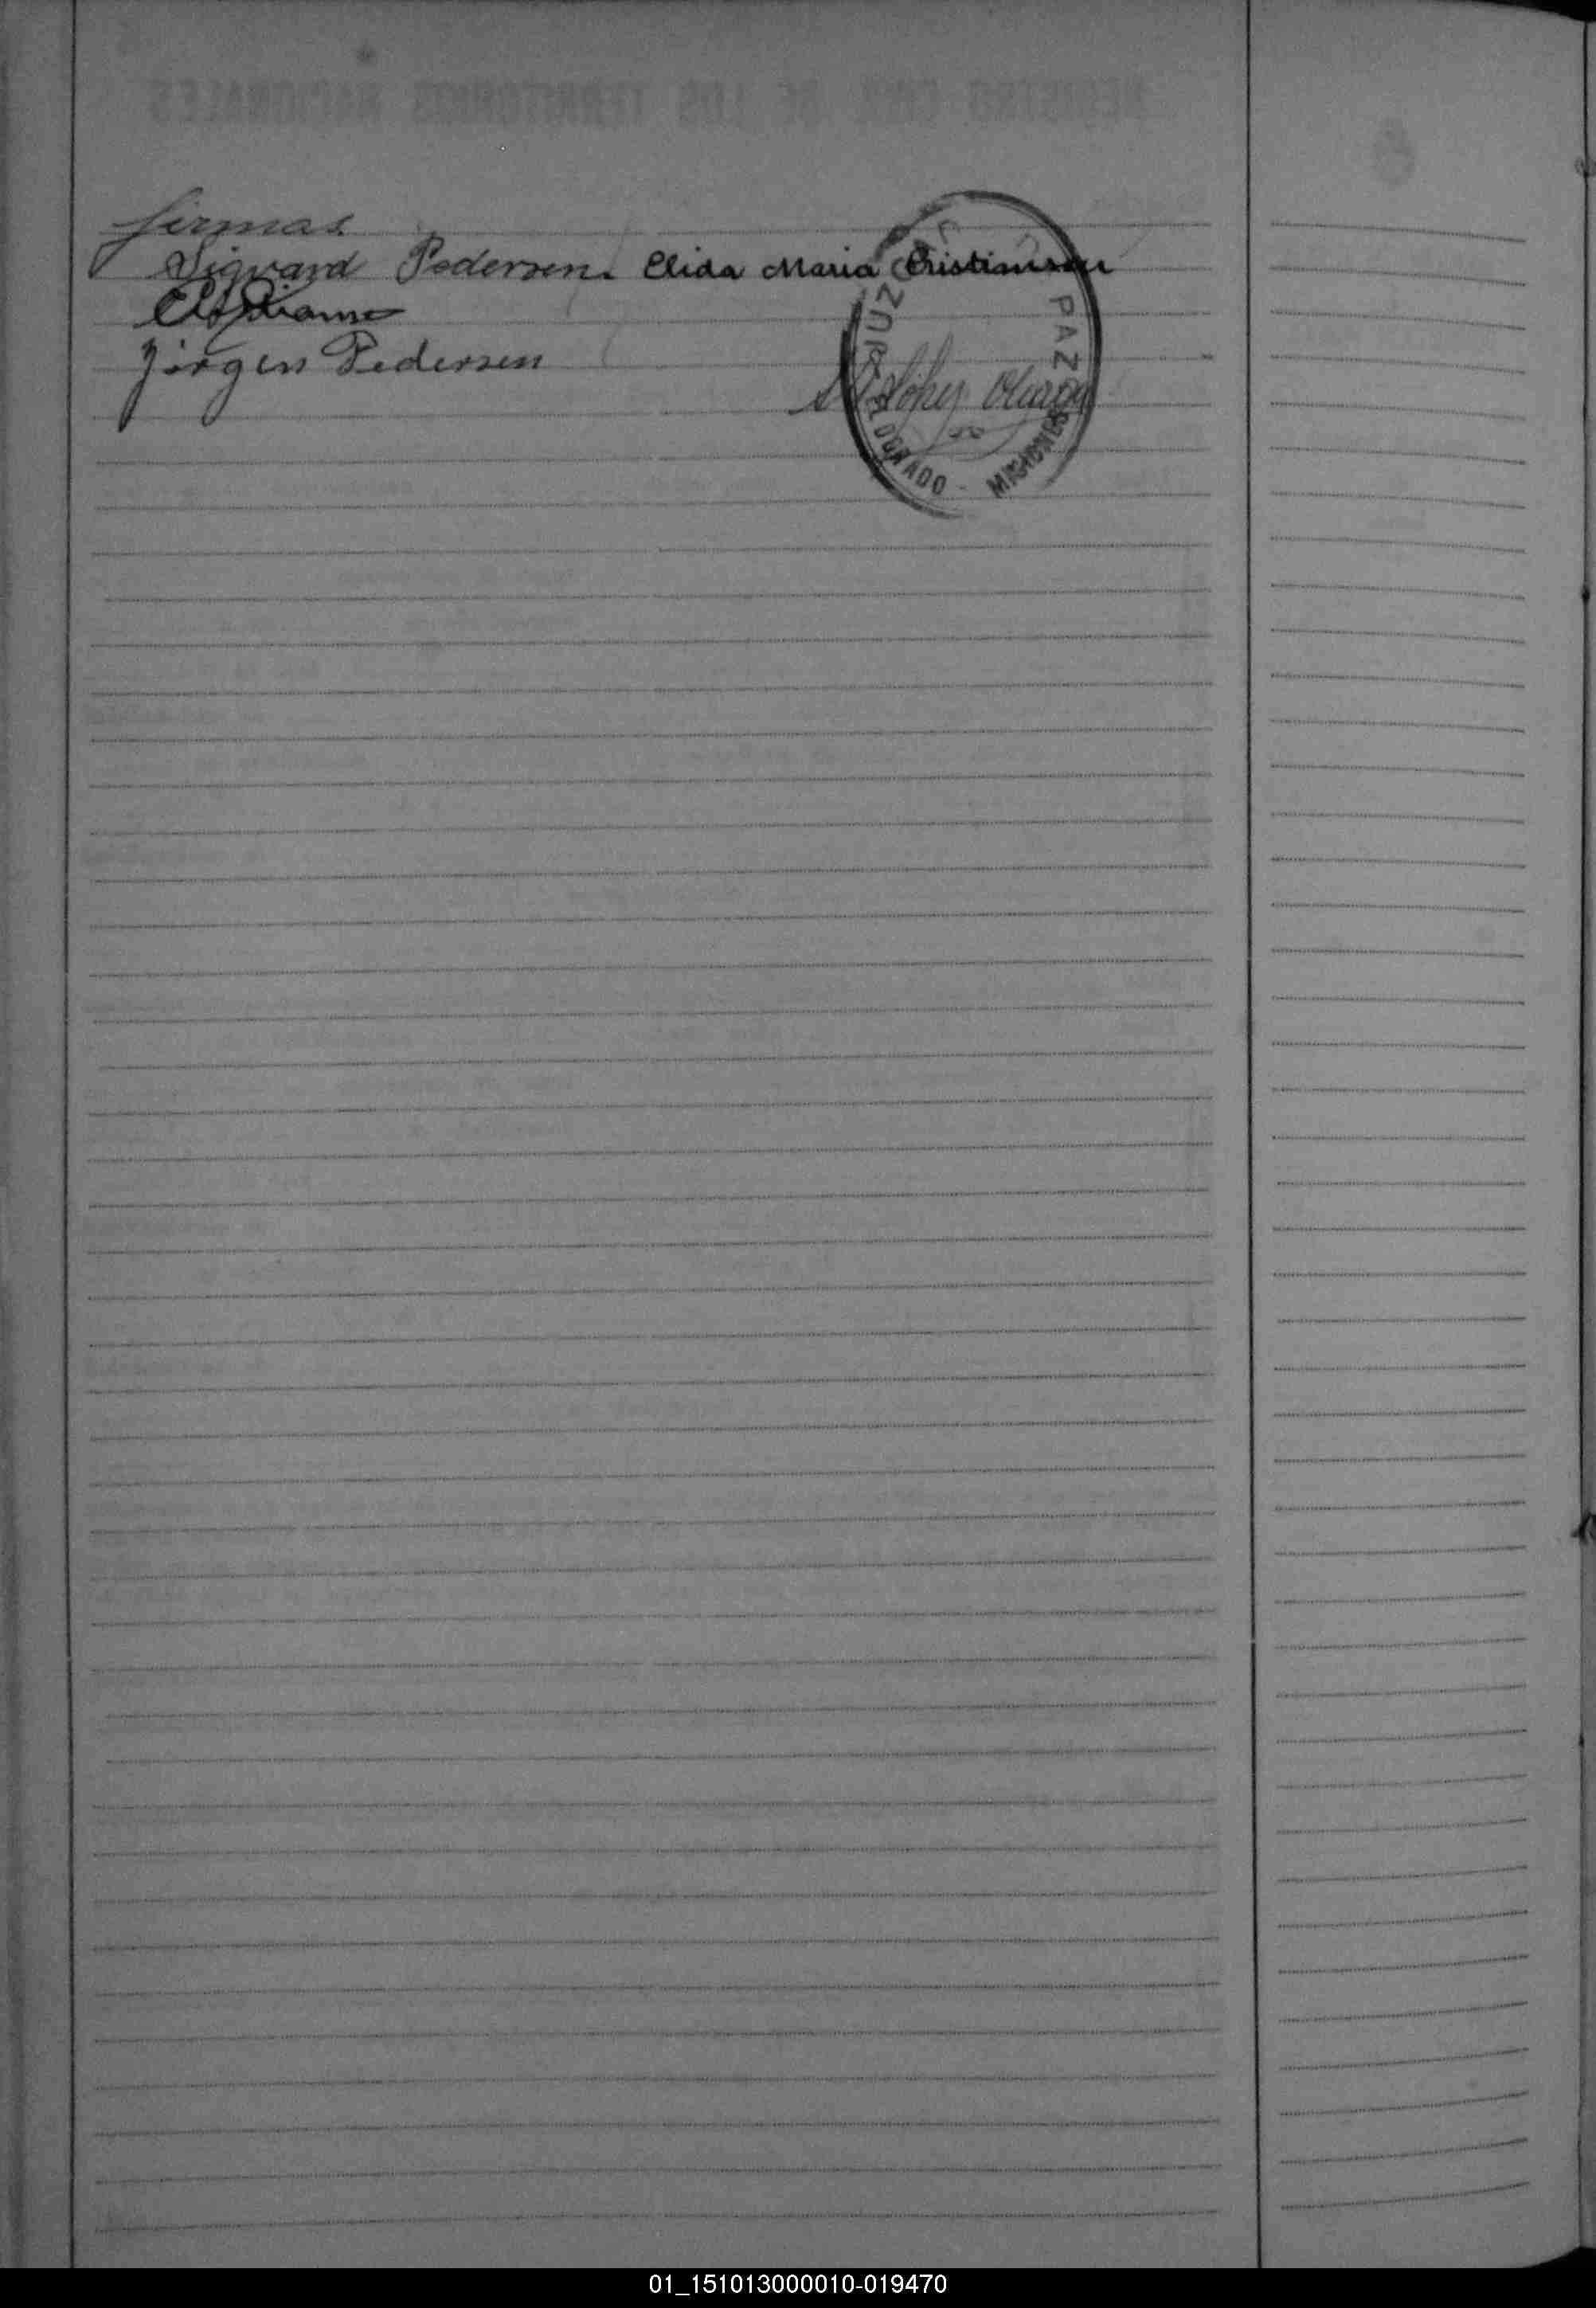 firmas
Sigvard Pedersen. Elida Maria Cristiansen
Jörgen Pedersen
JUZ PAZ
ELDORADO - MISIONES
01_151013000010-019470